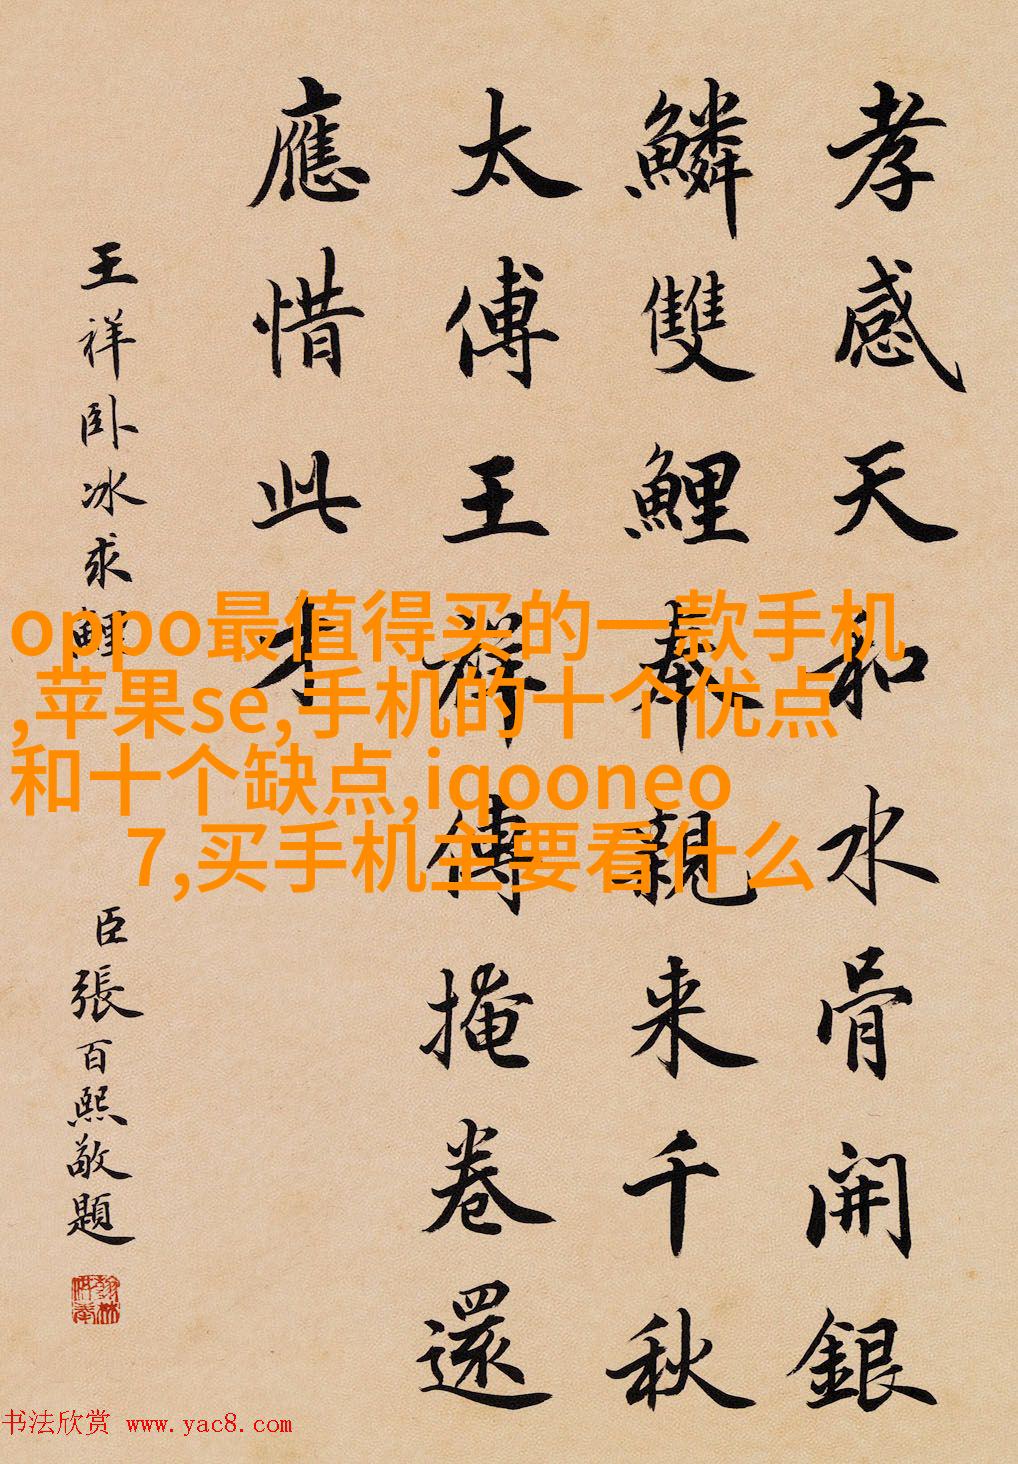 孝感天和水骨開銀
鱗雙鯉奉親来千秋
太傅王祥傳掩卷還
應惜此才
王祥卧冰求鯉
臣張百熙敬題
oppo最值得买的一款手机
,苹果se,手机的十个优点
和十个缺点,iqooneo
7,买手机主要看什么
书法欣赏 www.yac8.com